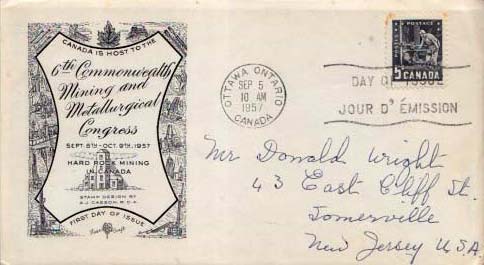 CANADA IS HOST TO THE
6th Commonwealth
Mining and
Metallurgical
Congress
SEPT. 8TH-OCT. 9TH, 1957
HARD ROCK MINING
IN CANADA
STAMP DESIGN BY
A.J. CASSON, R.C.A.
FIRST DAY OF ISSUE
OTTAWA ONTARIO
SEP 5
10 AM
1957
CANADA
POSTAGE POSTES
5 CANADA
DAY OF ISSUE
JOUR D'ÉMISSION
Mr Donald Wright
43 East Cliff St.
Somerville
New Jersey U.S.A.